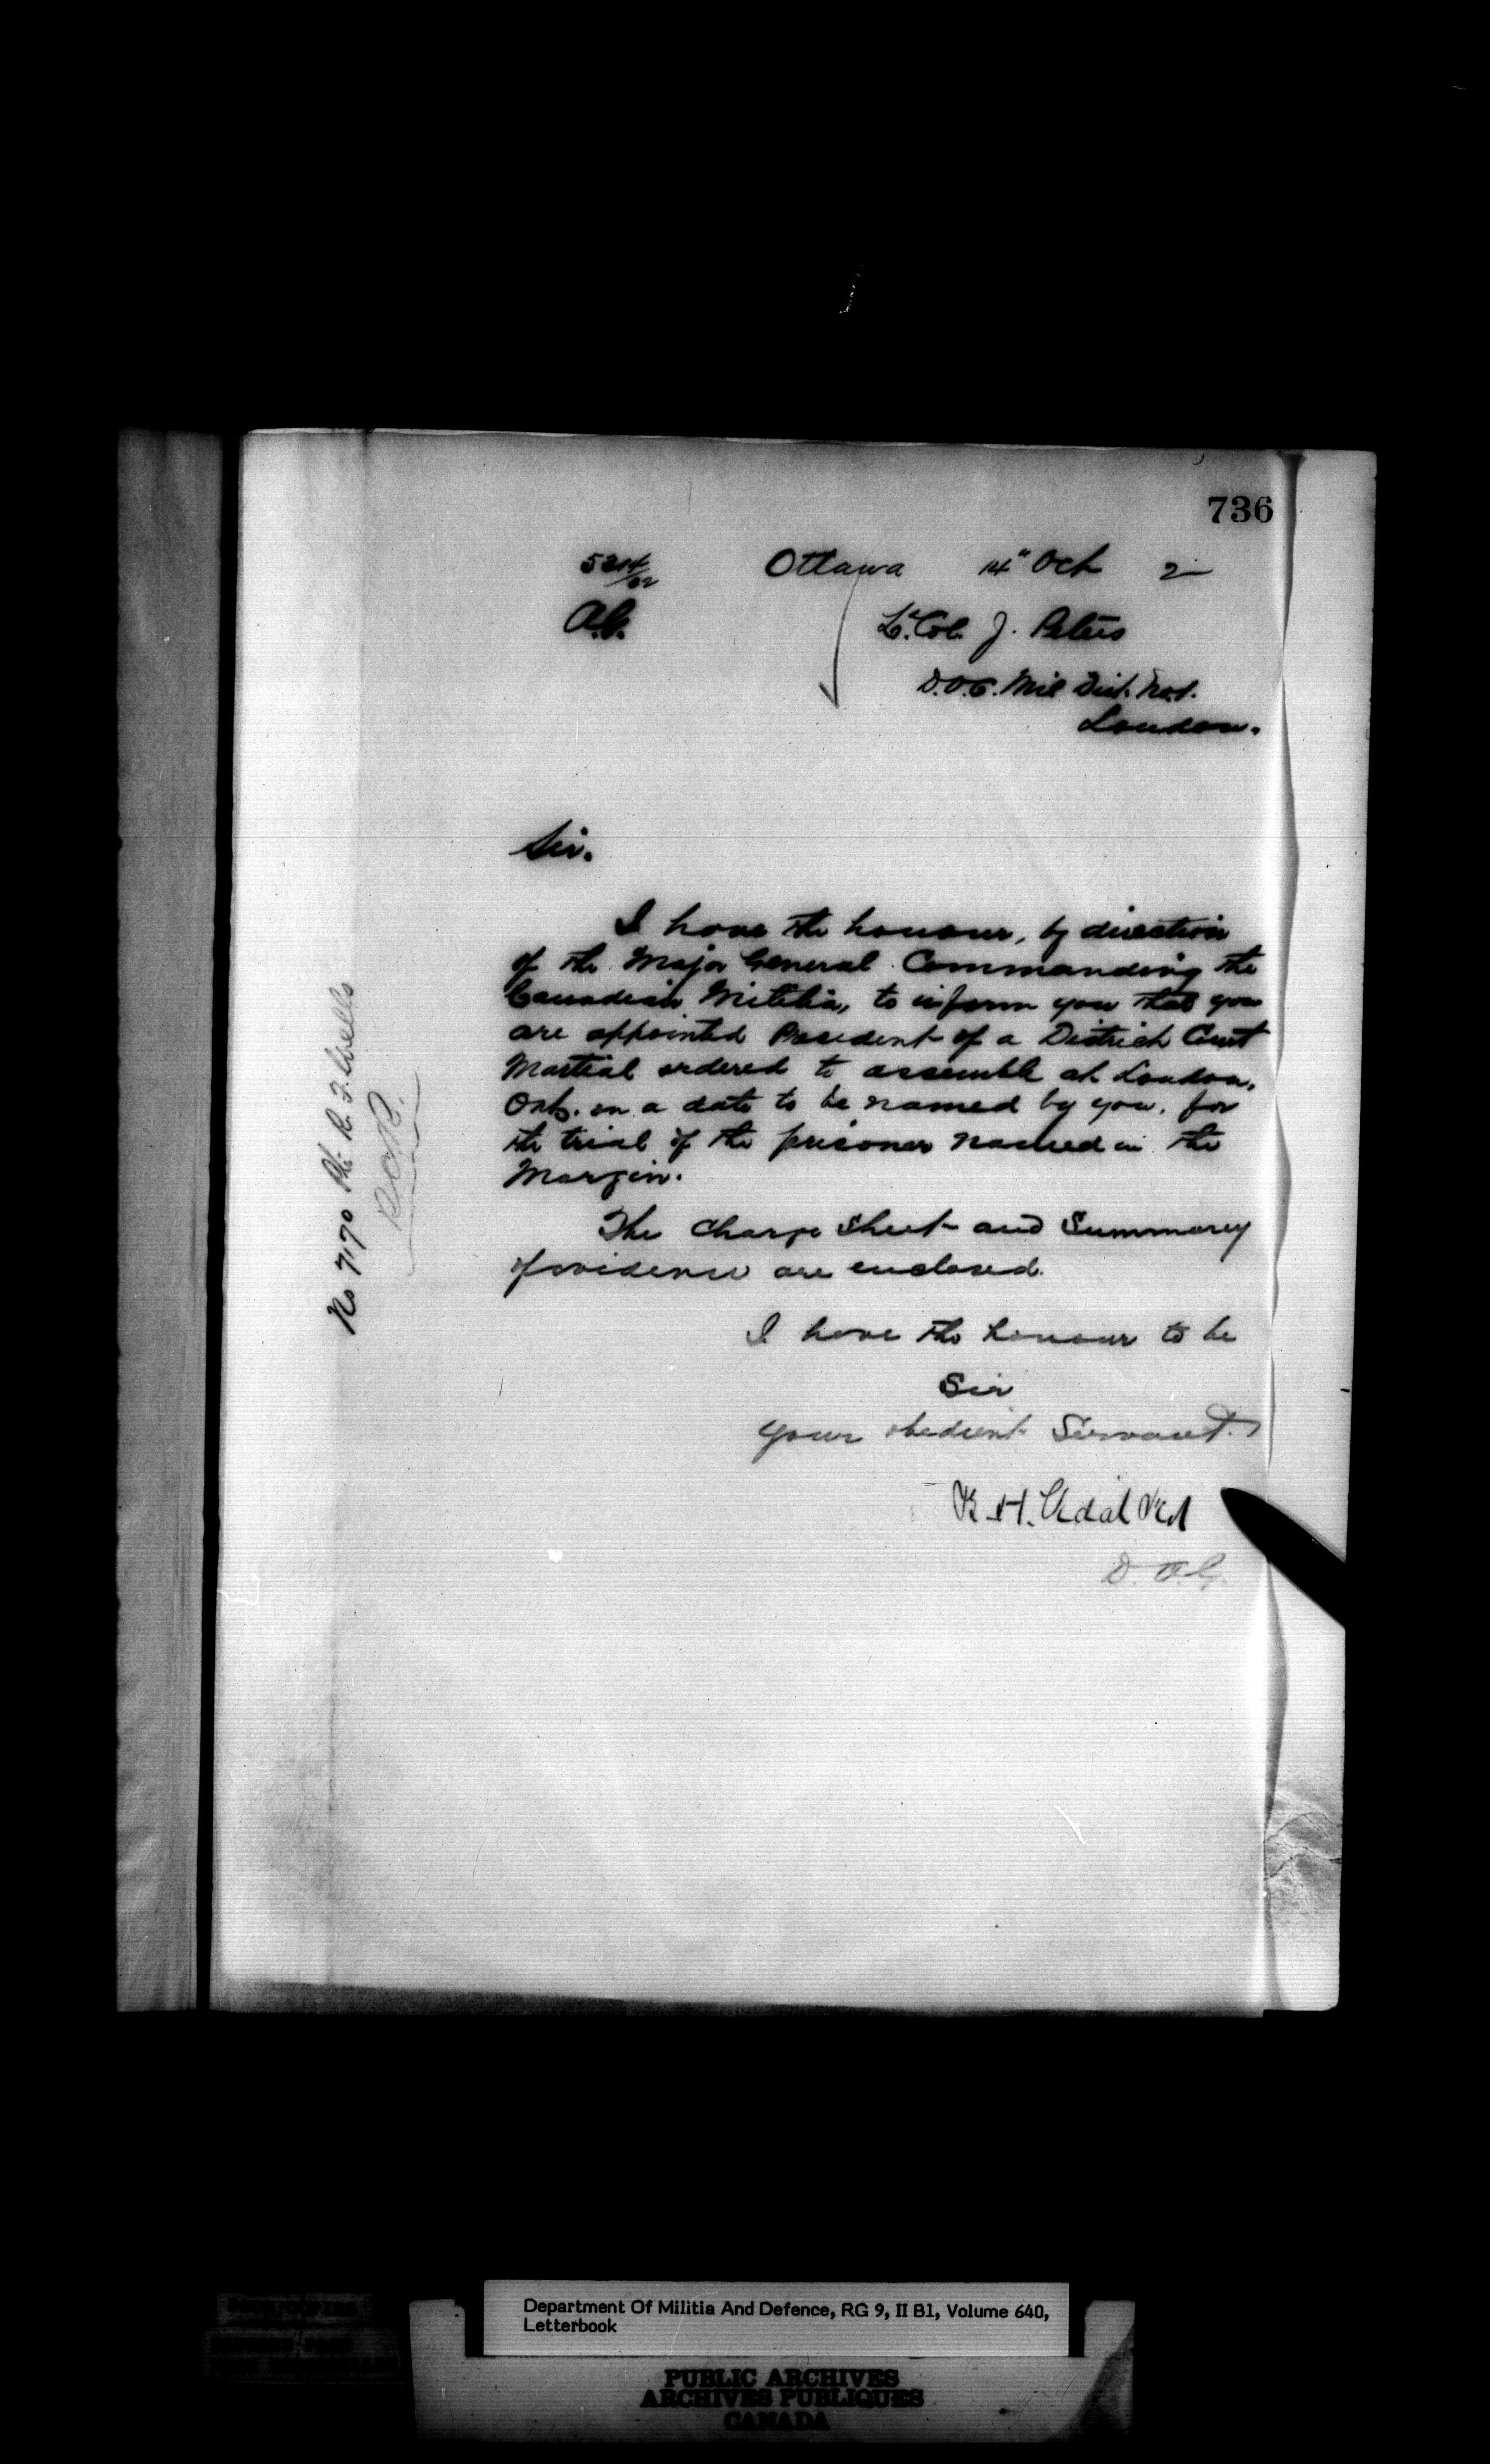 736
5214/02
Ottawa 14" Oct 2
A.G.
Lt. Col. J. Peters
D.O.C. Mil Dist. No. 1.
London.
Sir.
I have the honour, by direction
of the Major General Commanding the
Canadian Militia, to inform you that you
are appointed President of a District Court
Martial ordered to assemble at London,
Ont. on a date to be named by you, for
the trial of the prisoner named in the
Margin.
No 7170 Pte R. F. Wells
R.C.R.
The Charge Sheet and Summary
of evidence are enclosed.
I have the honour to be
Sir
Your obedient Servant.
B. H. Vidal Col
D. A. G.
Department Of Militia And Defence, RG 9, II B1, Volume 640,
Letterbook
PUBLIC ARCHIVES
ARCHIVES PUBLIQUES
CANADA